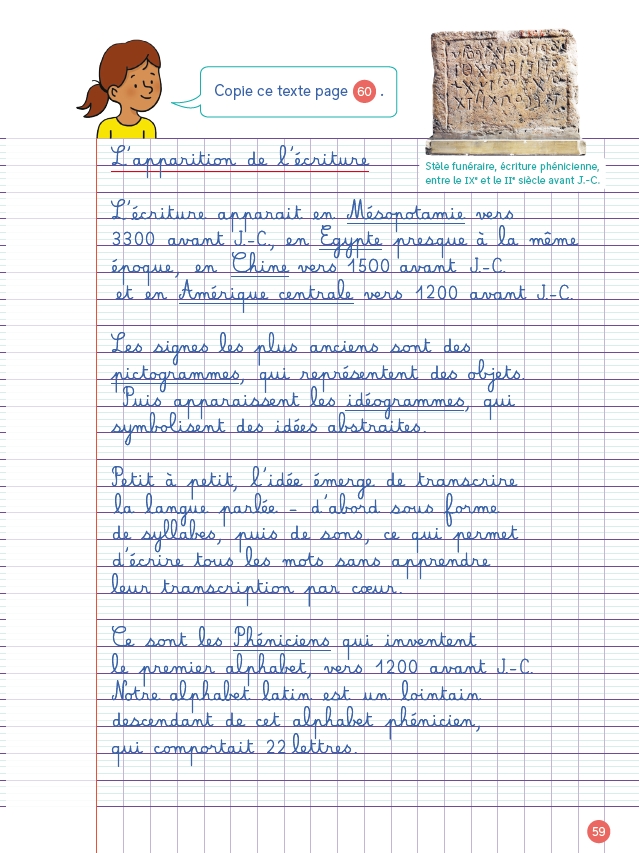 Copie ce texte page 60 .
Stèle funéraire, écriture phénicienne,
entre le IXe et le IIe siècle avant J.-C.
L'apparition de l'écriture
L'écriture apparait en Mésopotamie vers
3300 avant J.-C., en Égypte presque à la même
époque, en Chine vers 1500 avant J.-C.
et en Amérique centrale vers 1200 avant J.-C.
Les signes les plus anciens sont des
pictogrammes, qui représentent des objets.
Puis apparaissent les idéogrammes, qui
symbolisent des idées abstraites.
Petit à petit, l'idée émerge de transcrire
la langue parlée - d'abord sous forme
de syllabes, puis de sons, ce qui permet
d'écrire tous les mots sans apprendre
leur transcription par cœur.
Ce sont les Phéniciens qui inventent
le premier alphabet, vers 1200 avant J.-C.
Notre alphabet latin est un lointain
descendant de cet alphabet phénicien,
qui comportait 22 lettres.
59